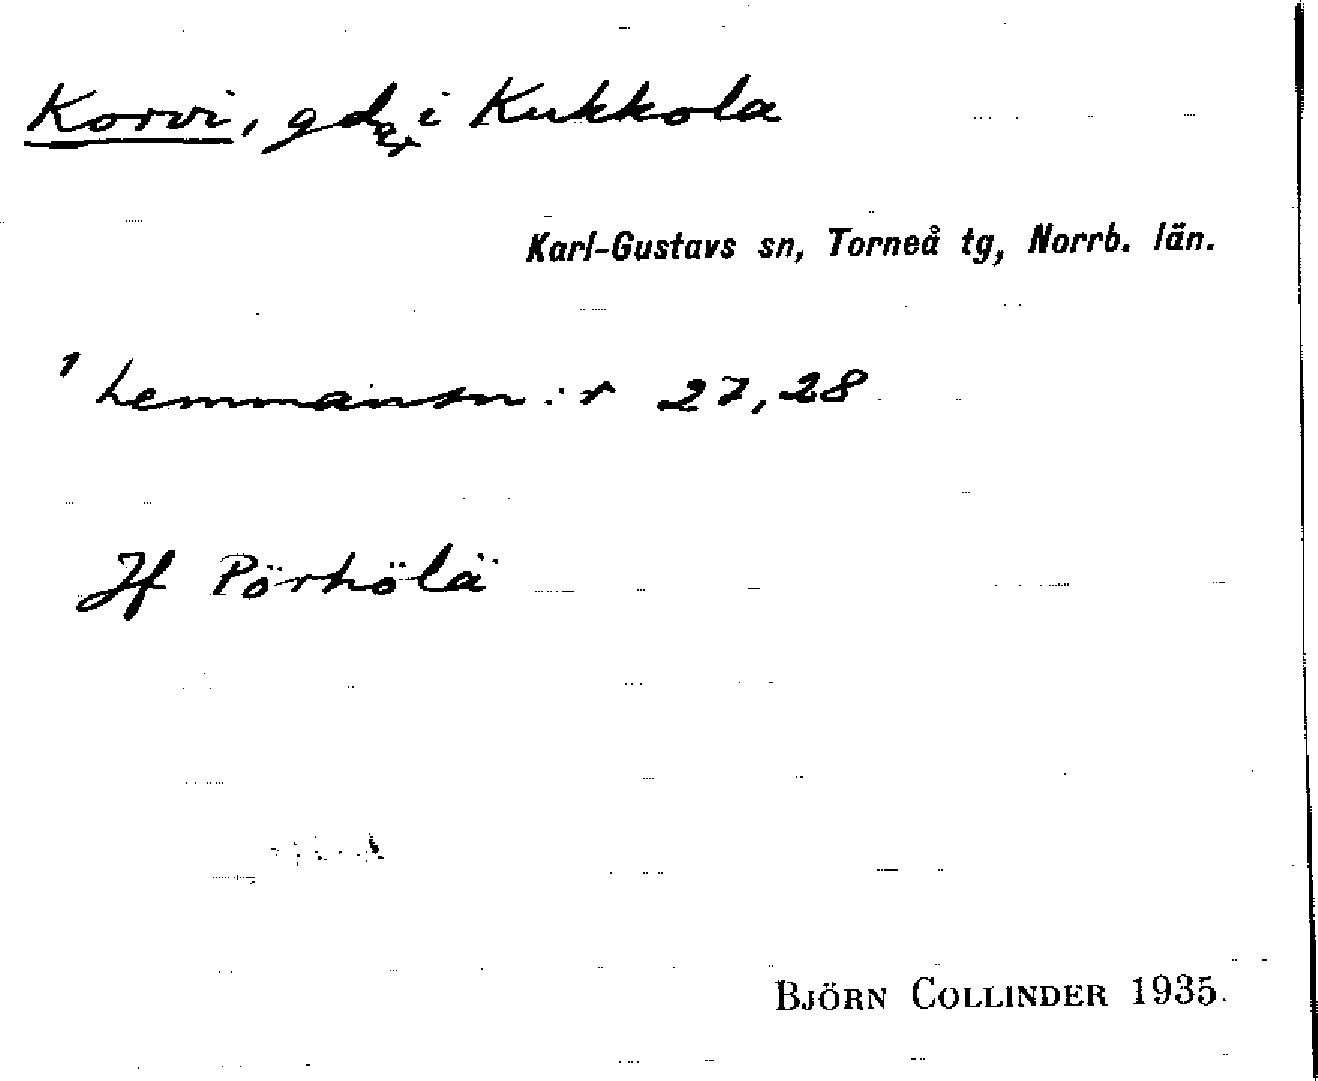 Korvi, gdar i Kukkola
Karl-Gustavs sn, Torneå tg, Norrb. län.
1 hemmansn:r 27, 28
Jf Pörhölä
BJÖRN COLLINDER 1935.